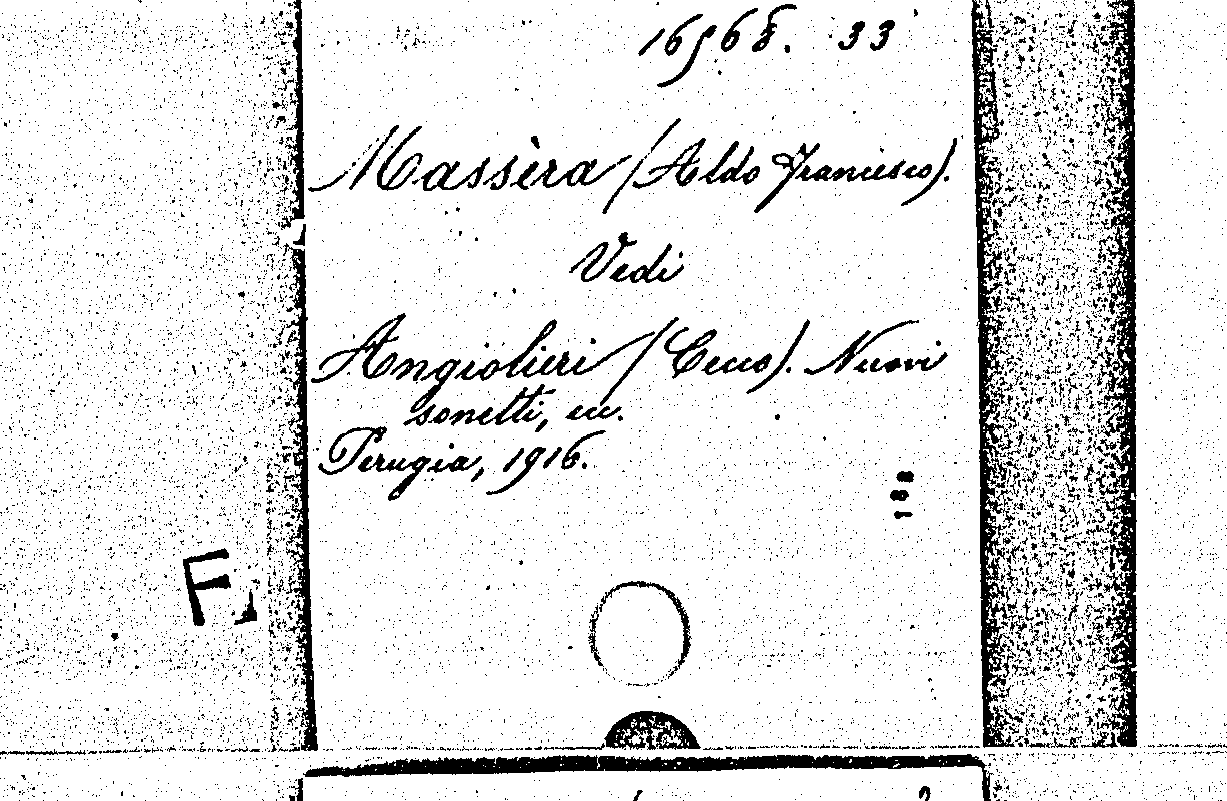 16568. 33
Massèra (Aldo Francesco).
Vedi
Angiolieri (Cecco). Nuovi
sonetti, ecc.
Perugia, 1916.
188
F